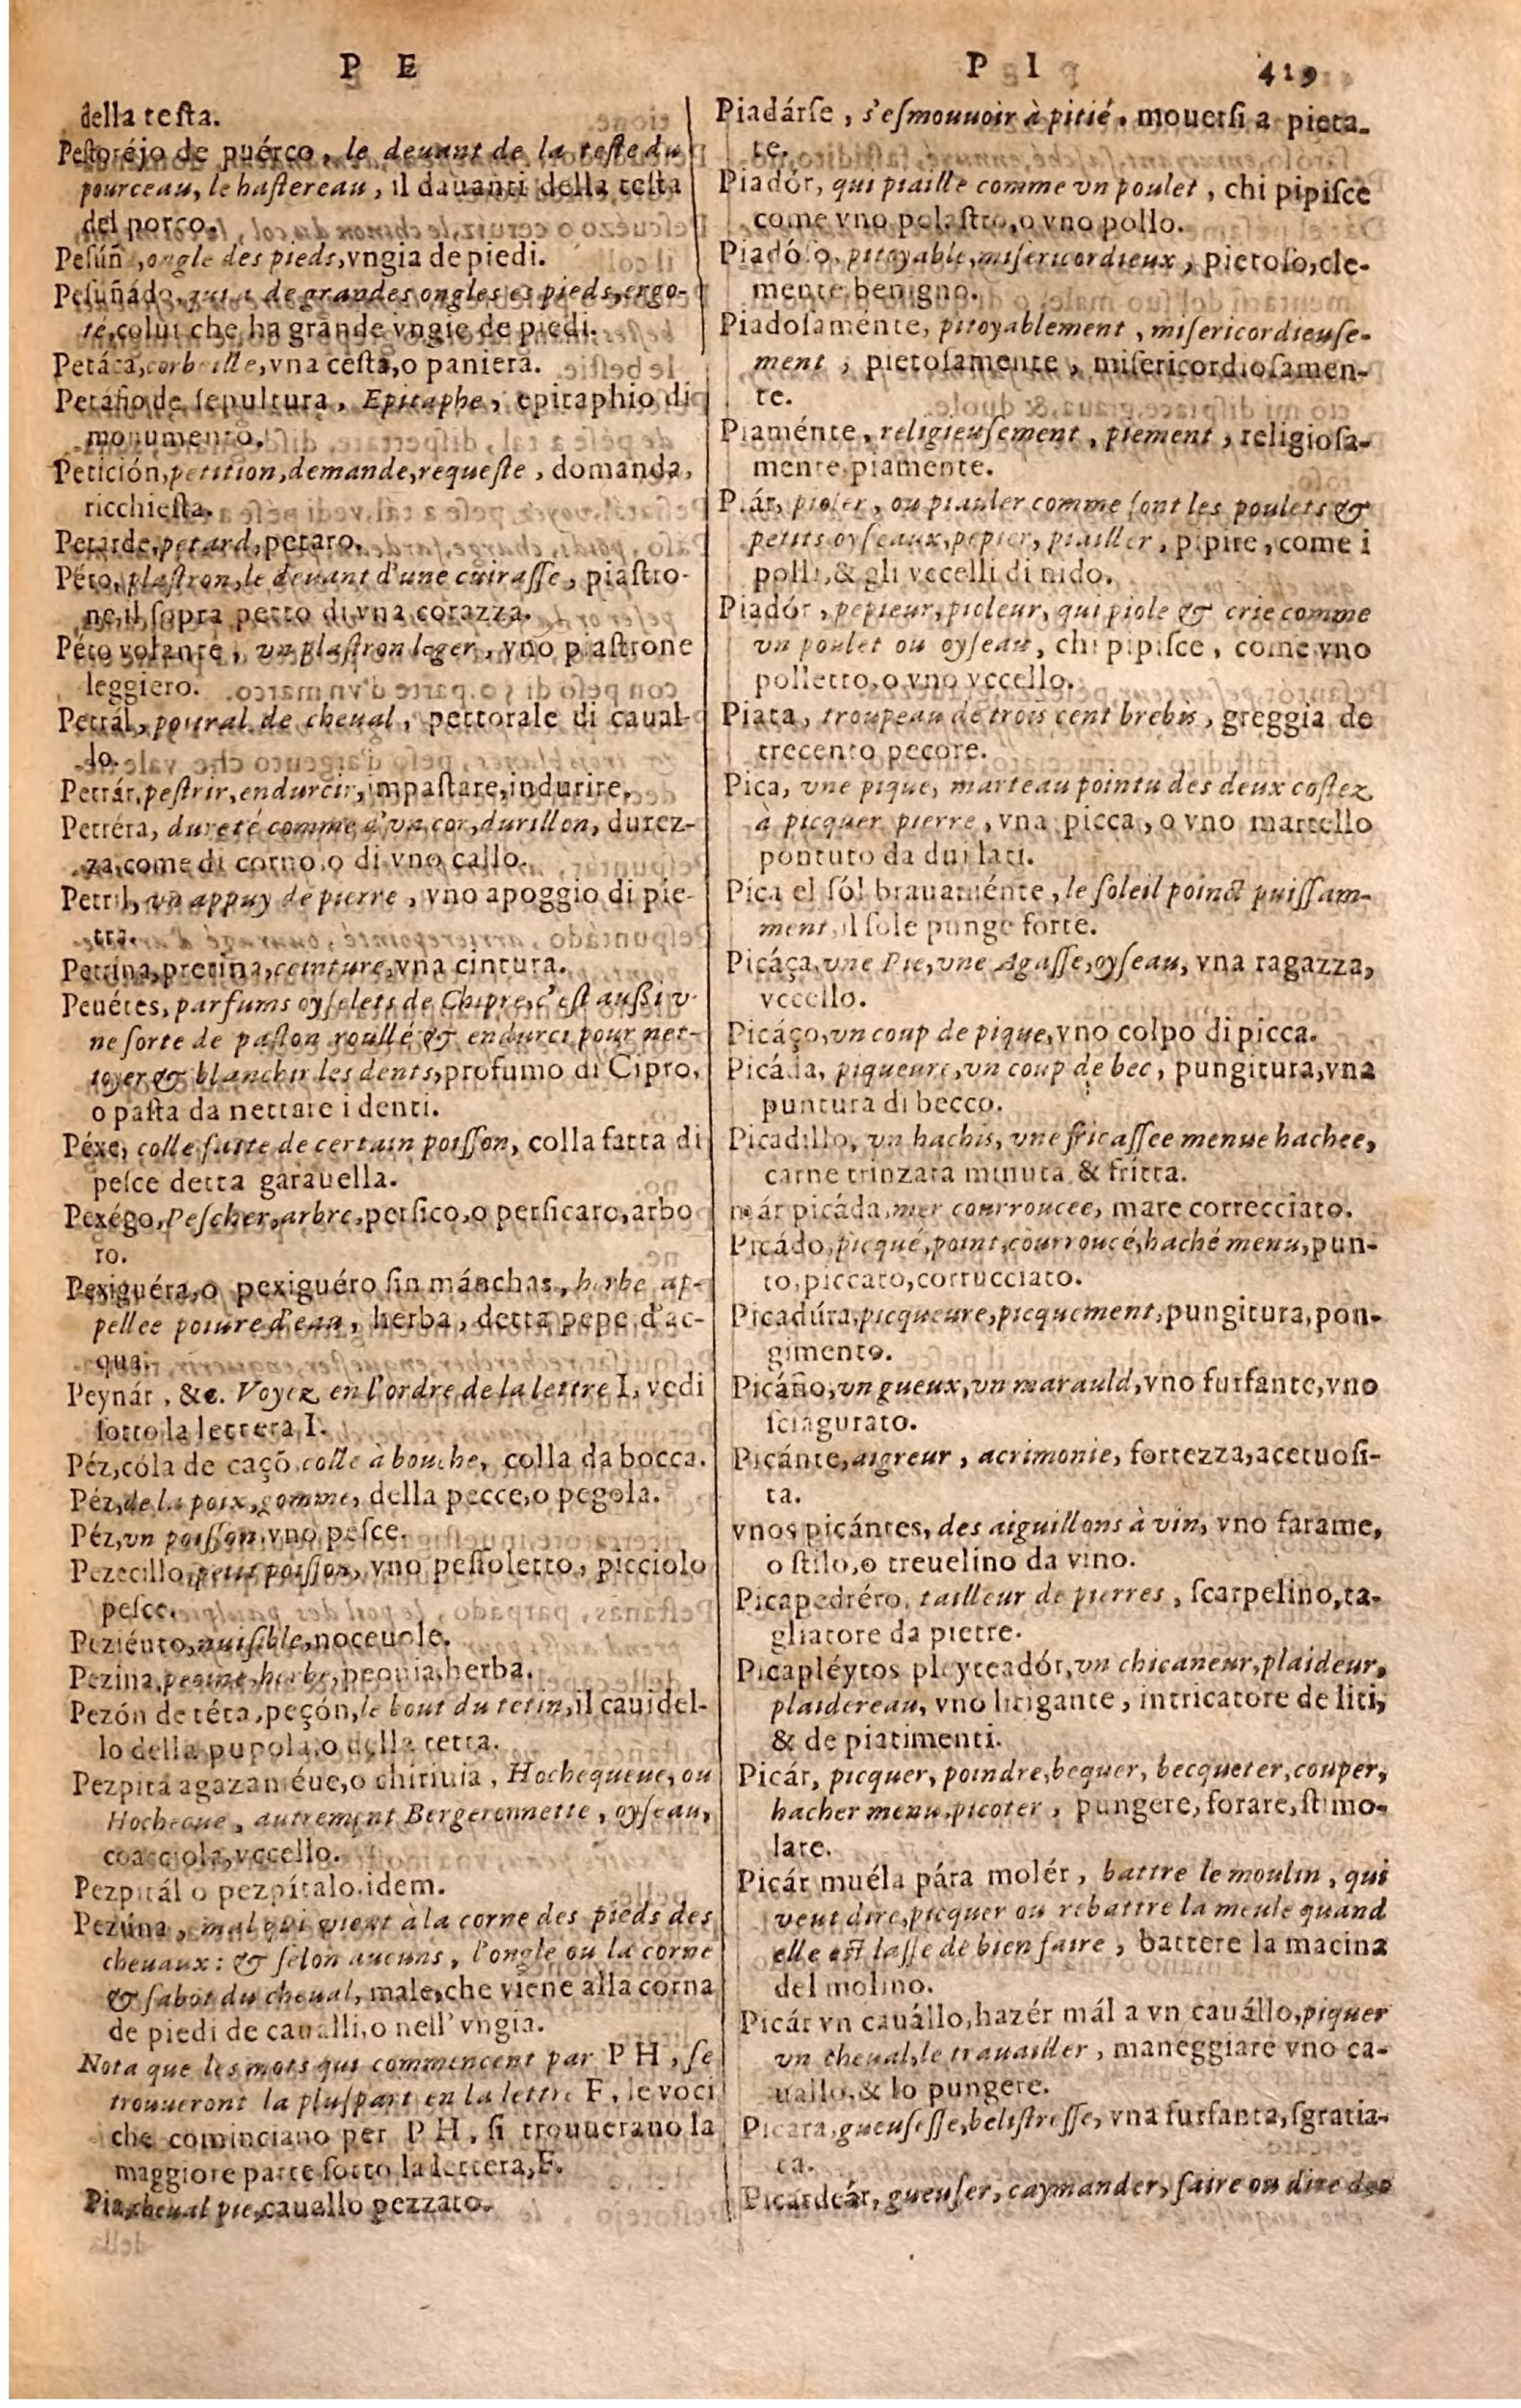 P E
della teſta.
Peſtoréjo de puérco, le deuant de la teſte du
pourceau, le haſtereau, il dauanti della teſta
del porco.
Peſúñ, ongle des pieds, vngia de piedi.
Peſuñádo, qui a de grandes ongles es pieds, ergo-
té, colui che ha grande vngie de piedi.
Petáca, corbeille, vna ceſta, o paniera.
Petáfio de ſepultura, Epitaphe, epitaphio di
monumento.
Petición, petition, demande, requeſte, domanda,
ricchieſta.
Petarde, petard, petaro.
Péto, plaſtron, le deuant d'une cuiraſſe, piaſtro-
ne, il ſopra petto di vna corazza.
Péto volante, vn plaſtron leger, vno piaſtrone
leggiero.
Petrál, poitral de cheual, pettorale di caual-
lo.
Petrár, peſtrir, endurcir, impaſtare, indurire.
Petréra, dureté comme d'vn cor, durillon, durez-
za, come di corno, o di vno callo.
Petril, vn appuy de pierre, vno apoggio di pie-
tra.
Petrina, pretina, ceinture, vna cintura.
Peuétes, parfums oyſelets de Chipre, c'eſt auſſi v-
ne ſorte de paſton roullé & endurci pour net-
toyer & blanchir les dents, profumo di Cipro,
o paſta da nettare i denti.
Péxe, colle faite de certain poiſſon, colla fatta di
peſce detta garauella.
Pexégo, Peſcher, arbre, perſico, o perſicaro, arbo
ro.
Pexiguéra, o pexiguéro ſin mánchas, herbe ap-
pellee poiure d'eau, herba, detta pepe d'ac-
qua.
Peynár, &c. Voyez en l'ordre de la lettre I, vedi
ſotto la lettera I.
Péz, cóla de caçō, colle à bouche, colla da bocca.
Péz, de la poix, gomme, della pecce, o pegola.
Péz, vn poiſſon, vno peſce.
Pezecillo, petit poiſſon, vno peſioletto, picciolo
peſce.
Peziénto, nuiſible, noceuole.
Pezina, peoine, herbe, peonia, herba.
Pezón de téta, peçón, le bout du tetin, il cauidel-
lo della pupola, o della tetta.
Pezpita agazaniéue, o chiriuia, Hochequeue, ou
Hocheque, autrement Bergeronnette, oyſeau,
coacciola, vccello.
Pezpitál o pezpítalo, idem.
Pezúna, mal qui vient à la corne des pieds des
cheuaux: & ſelon aucuns, l'ongle ou la corne
& ſabot du cheual, male, che viene alla corna
de piedi de caualli, o nell' vngia.
Nota que les mots qui commencent par P H, ſe
trouueront la pluſpart en la lettre F, le voci
che cominciano per P H, ſi trouuerano la
maggiore parte ſotto la lettera, F.
Pia, cheual pie, cauallo pezzato.
P I 419
Piadárſe, s'eſmouuoir à pitié, mouerſi a pieta-
te.
Piadór, qui piaille comme vn poulet, chi pipiſce
come vno polaſtro, o vno pollo.
Piadóſo, pitoyable, miſericordieux, pietoſo, cle-
mente benigno.
Piadoſaménte, pitoyablement, miſericordieuſe-
ment, pietoſamente, miſericordioſamen-
te.
Piaménte, religieuſement, piement, religioſa-
mente, piamente.
Piár, pioler, ou piauler comme ſont les poulets &
petits oyſeaux, pepier, piailler, pipire, come i
polli, & gli vccelli di nido.
Piadór, pepieur, pioleur, qui piole & crie comme
vn poulet ou oyſeau, chi pipiſce, come vno
polletto, o vno vccello.
Piata, troupeau de trois cent brebis, greggia de
trecento pecore.
Pica, vne pique, marteau pointu des deux coſtez
à picquer pierre, vna picca, o vno martello
pontuto da dui lati.
Pica el ſól brauaménte, le ſoleil poinct puiſſam-
ment, il ſole punge forte.
Picáça, vne Pie, vne Agaſſe, oyſeau, vna ragazza,
vccello.
Picáço, vn coup de pique, vno colpo di picca.
Picáda, piqueure, vn coup de bec, pungitura, vna
puntura di becco.
Picadillo, vn hachis, vne fricaſſee menue hachee,
carne trinzata minuta & fritta.
már picáda, mer courroucee, mare correcciato.
Picádo, picqué, point, courroucé, haché menu, pun-
to, piccato, corrucciato.
Picadúra, picqueure, picquement, pungitura, pon-
gimento.
Picáño, vn gueux, vn marauld, vno furfante, vno
ſciagurato.
Picánte, aigreur, acrimonie, fortezza, acetuoſi-
ta.
vnos picántes, des aiguillons à vin, vno farame,
o ſtilo, o treuelino da vino.
Picapedréro, tailleur de pierres, ſcarpelino, ta-
gliatore da pietre.
Picapléytos pleyteadór, vn chicaneur, plaideur,
plaidereau, vno litigante, intricatore de liti,
& de piatimenti.
Picár, picquer, poindre, bequer, becqueter, couper,
hacher menu, picoter, pungere, forare, ſtimo-
lare.
Picár muéla pára molér, battre le moulin, qui
veut dire, picquer ou rebattre la meule quand
elle eſt laſſe de bien faire, battere la macina
del molino.
Picár vn cauállo, hazér mál a vn cauállo, piquer
vn cheual, le trauailler, maneggiare vno ca-
uallo, & lo pungere.
Picara, gueuſeſſe, beliſtreſſe, vna furfanta, ſgratia-
ta.
Picardeár, gueuſer, caymander, faire ou dire des